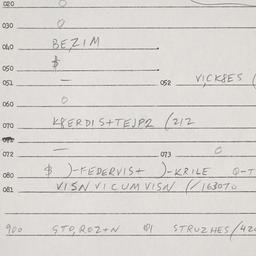 020 O
030 O
040 BEZIM
050 $
051 — 052 VICKSES (
060 O
070 K8ERDIS+TEJPZ (212
071
072 — 073 O
080 $ )-FEDERVIS+ )-KRILE Q-T
081 VISN VICUM VISN (/163070
900 STQROZ+N Q1 STRUZHES/42